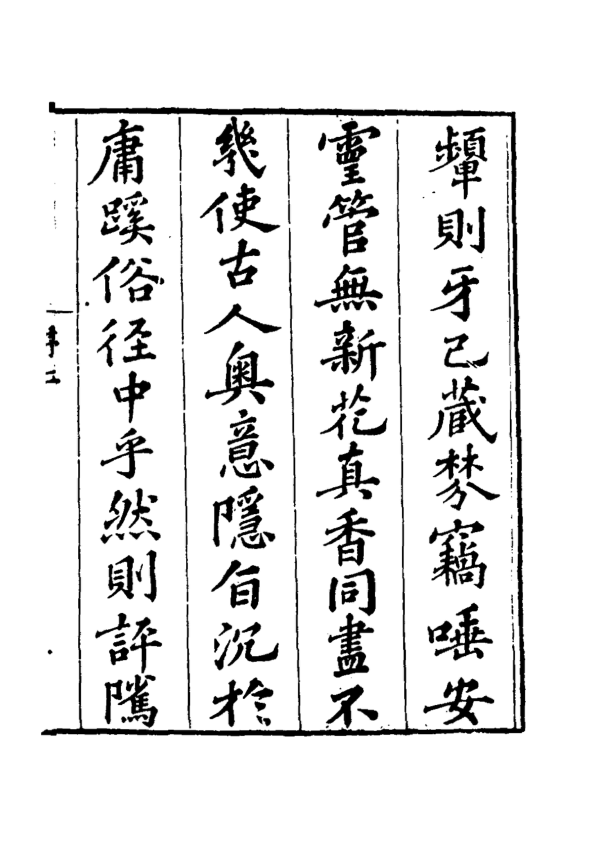 顰則牙已藏棼竊唾安
靈管無新花真香同盡不
幾使古人奧意隱旨沉於
庸蹊俗徑中乎然則評騭